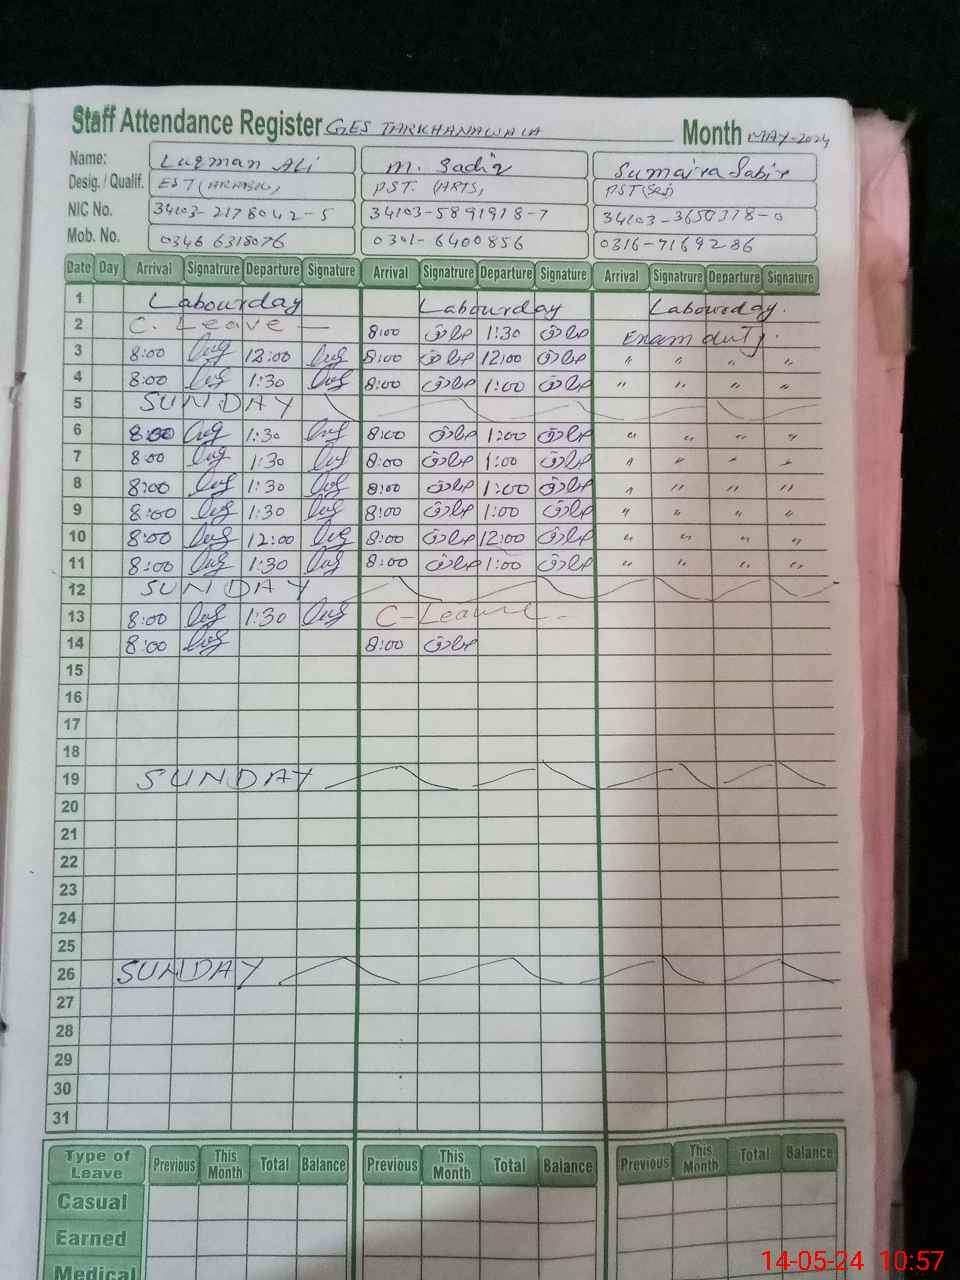 Staff Attendance Register GES TARKHANAWALA Month MAY-2024
Name: Luqman Ali M. Sadiq Sumaira Sabir
Desig. / Qualif. EST (ARABIC) PST. (ARTS) PST (Sci)
NIC No. 34103-2178042-5 34103-5891918-7 34103-3650378-0
Mob. No. 0346 6318076 0301-6400856 0316-7169286
Date Day Arrival Signatrure Departure Signature Arrival Signatrure Departure Signature Arrival Signatrure Departure Signature
1 Labourday Labourday Labourday.
2 C. Leave — 8:00 1:30 Exam duty.
3 8:00 12:00 8:00 12:00 " " " "
4 8:00 1:30 8:00 1:00 " " " "
5 SUNDAY
6 8:00 1:30 8:00 1:00 " " " "
7 8:00 1:30 8:00 1:00 " " " "
8 8:00 1:30 8:00 1:00 " " " "
9 8:00 1:30 8:00 1:00 " " " "
10 8:00 12:00 8:00 12:00 " " " "
11 8:00 1:30 8:00 1:00 " " " "
12 SUNDAY
13 8:00 1:30 C-Leave -
14 8:00 8:00
15
16
17
18
19 SUNDAY
20
21
22
23
24
25
26 SUNDAY
27
28
29
30
31
Type of Leave Previous This Month Total Balance Previous This Month Total Balance Previous This Month Total Balance
Casual
Earned
Medical
14-05-24 10:57